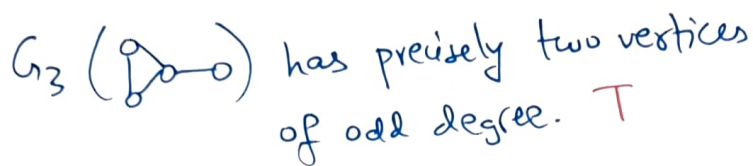 G3 ( ) has precisely two vertices
of odd degree. T